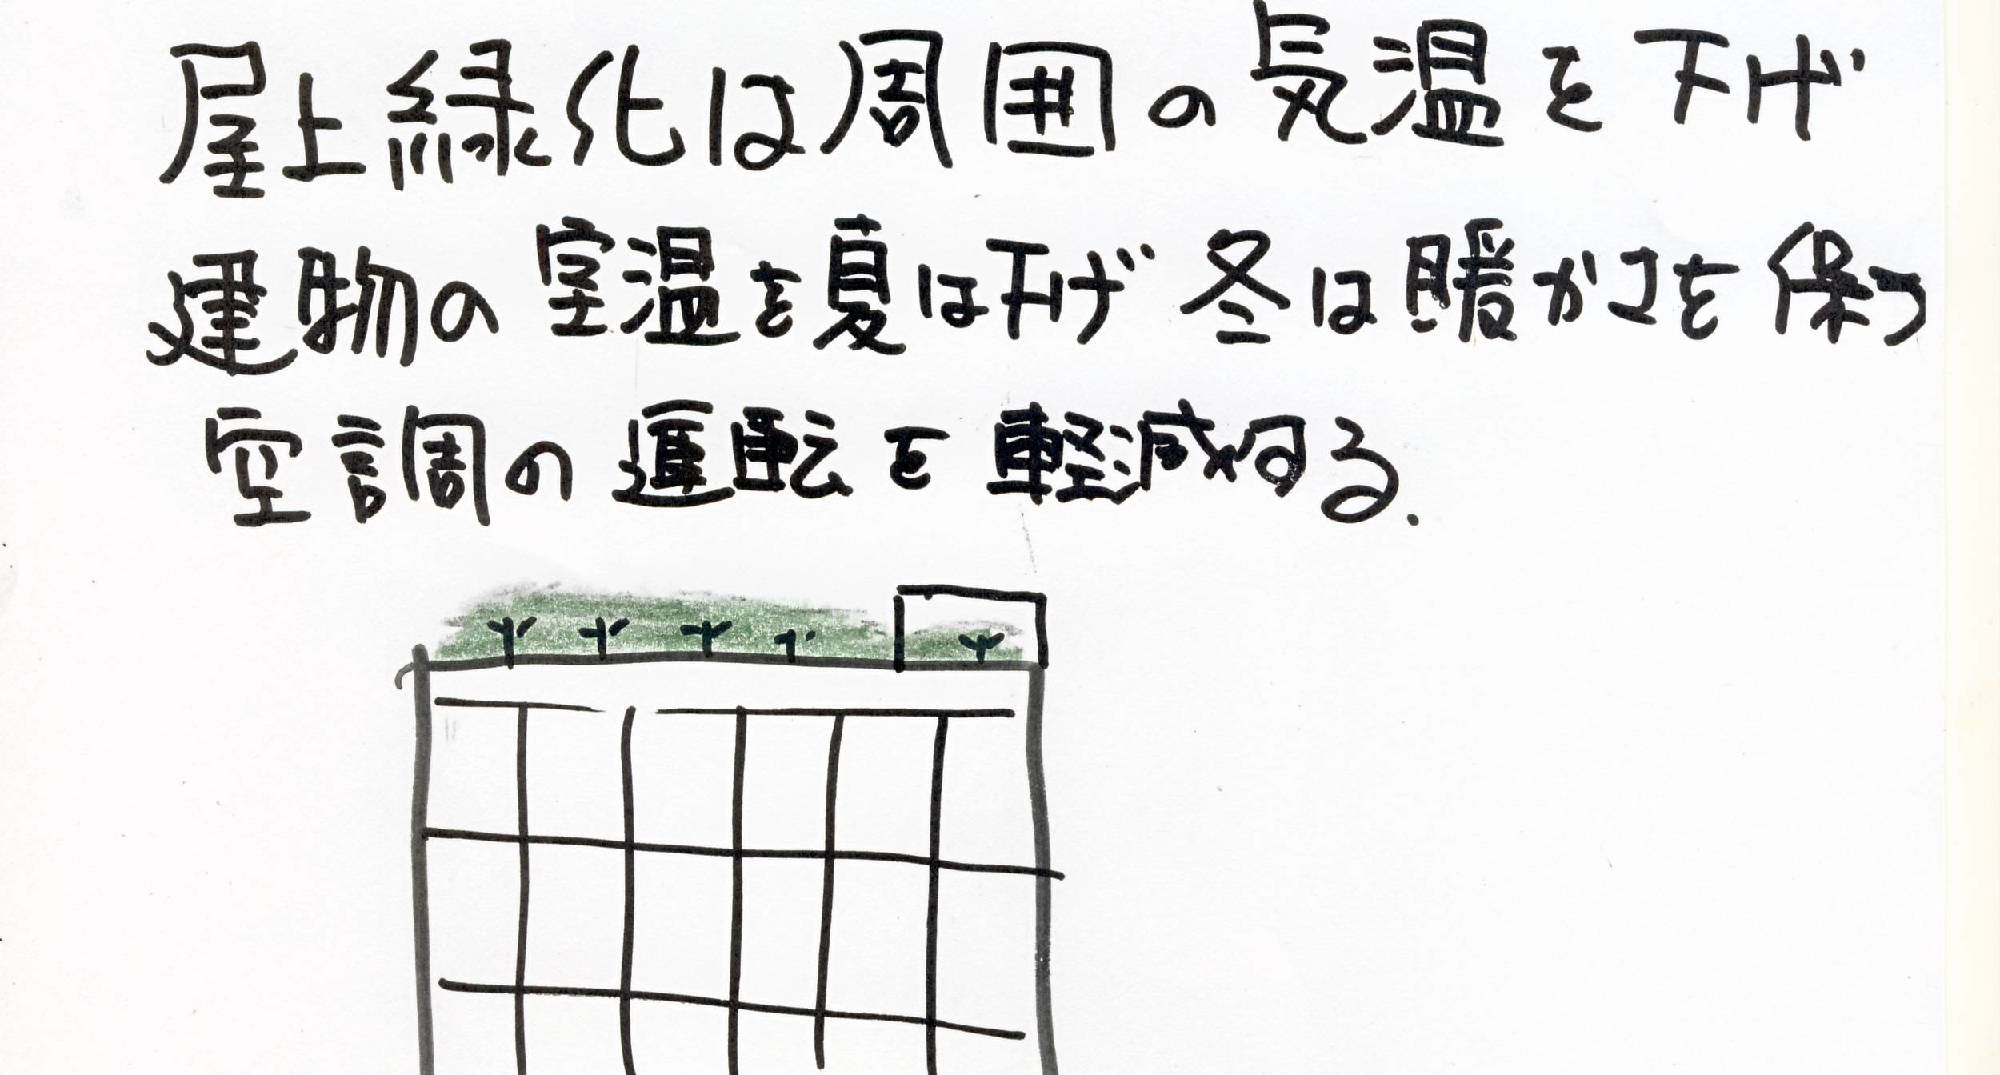 屋上緑化は周囲の気温を下げ
建物の室温を夏は下げ冬は暖かさを保つ
空調の運転を軽減する.